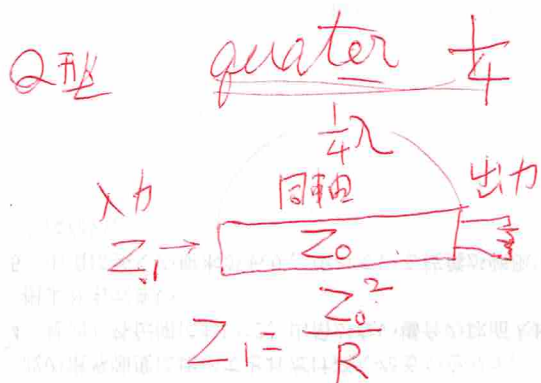 Q型 quater 1/4
1/4λ
入力 同軸 出力
Z1→ Z0
Z1 = Z0²/R